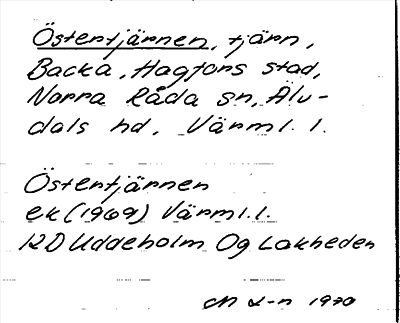 Östertjärnen, tjärn,
Backa, Hagfors stad,
Norra Råda sn, Älv-
dals hd, Värml. l.
Östertjärnen
ek (1969) Värml.l.
12D Uddeholm Og Lakheden
L-n 1970